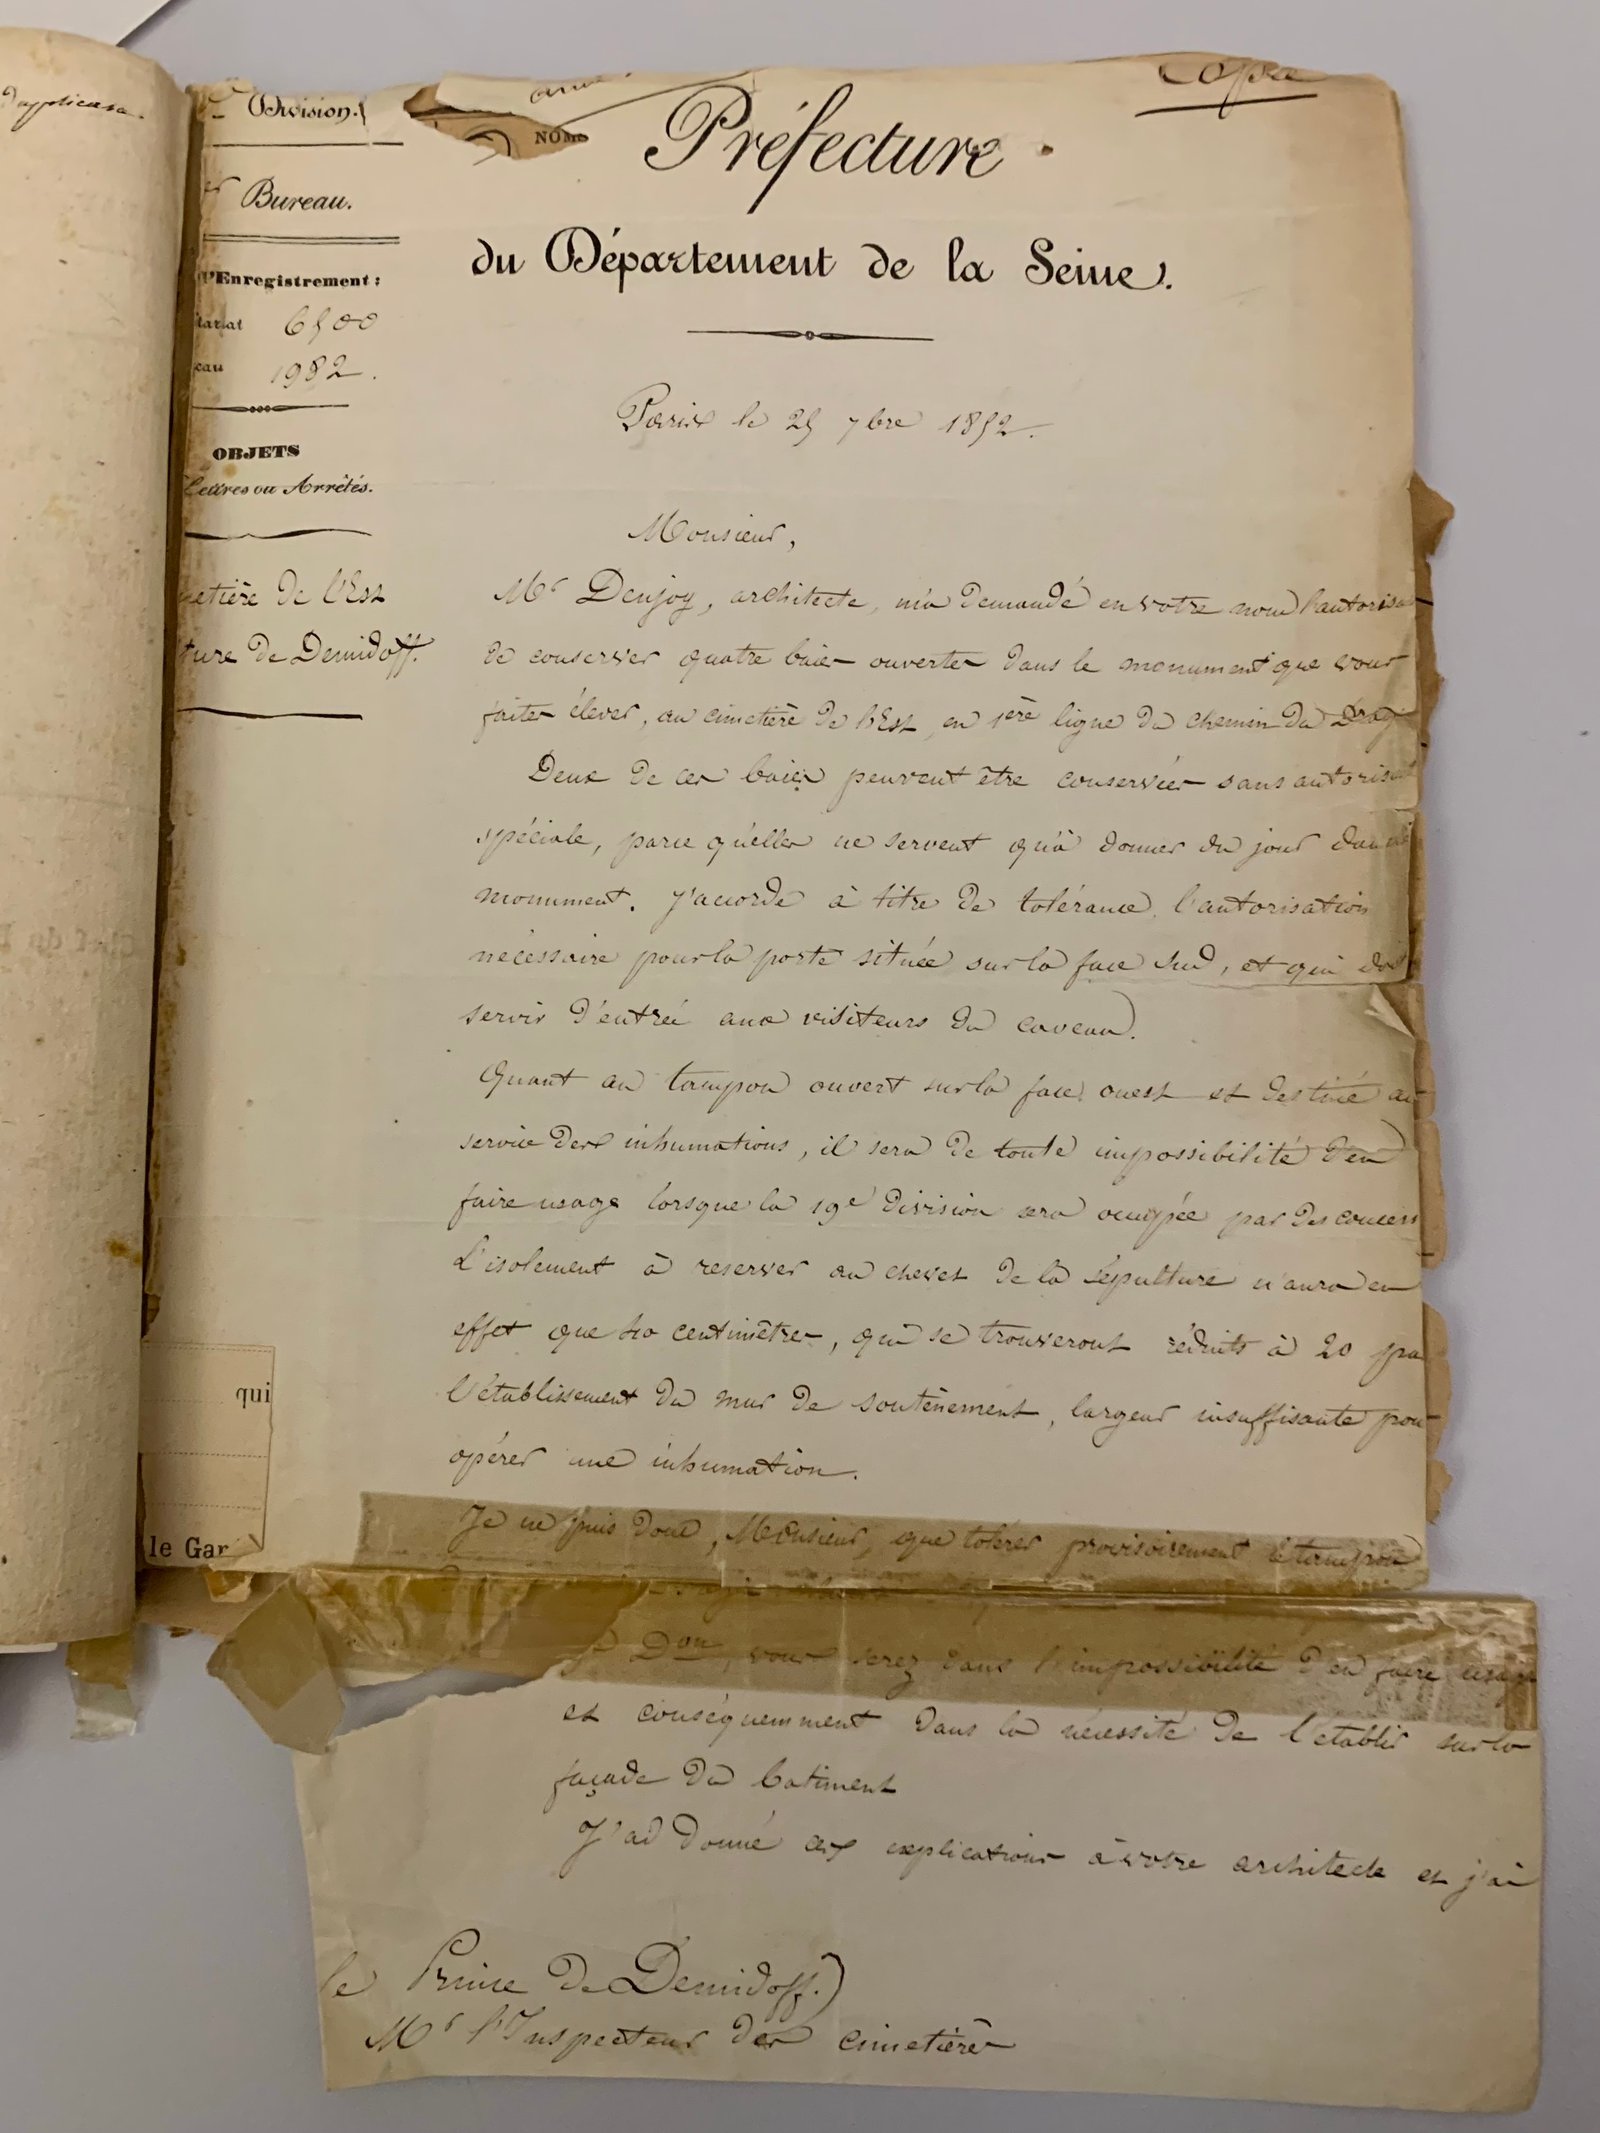 d'applicasa.
Copie
Division.
NOMS
Préfecture
Bureau.
du Département de la Seine.
l'Enregistrement :
tariat 6500
eau 1982.
Paris le 25 7bre 1852.
OBJETS
Lettres ou Arrêtés.
Monsieur,
etière de l'Est
ture de Demidoff.
Mr Denjoy, architecte, m'a demandé en votre nom l'autorisa
de conserver quatre baies ouvertes dans le monument que vous
faites élever, au cimetière de l'Est, en 1ère ligne du chemin du Drag
Deux de ces baies peuvent être conservées sans autorisat
spéciale, parce qu'elles ne servent qu'à donner du jour dans le
monument. J'accorde à titre de tolérance l'autorisation
nécessaire pour la porte située sur la face sud, et qui doit
servir d'entrée aux visiteurs du caveau.
Quant au tampon ouvert sur la face ouest et destiné au
service des inhumations, il sera de toute impossibilité d'en
faire usage lorsque la 19e division sera occupée par des concess
L'isolement à reserver au chevet de la sépulture n'aura en
effet que 40 centimètres, qui se trouveront réduits à 20 pa
l'établissement du mur de soutènement, largeur insuffisante pou
opérer une inhumation.
Je ne puis donc, Monsieur, que tolérer provisoirement le tampon
Don, vous serez dans l'impossibilité d'en faire usage
et conséquemment dans la nécessité de l'etablir sur la
façade du batiment
J'ai donné ces explications à votre architecte et j'ai
le Prince de Demidoff.)
Mr l'Inspecteur des cimetières
qui
le Gar